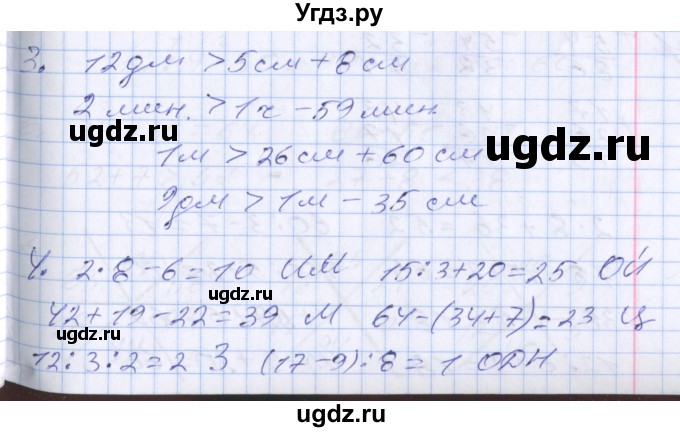 Угдз.ру
3. 12 дм > 5 см + 8 см
2 мин. > 1 ч - 59 мин.
ugdz.ru
ugdz.ru
1 м > 26 см + 60 см
9 дм > 1 м - 35 см
4. 2 · 8 - 6 = 10 ИМ 15 : 3 + 20 = 25 ОЙ
ugdz.ru
42 + 19 - 22 = 39 М 64 - (34 + 7) = 23 Ц
12 : 3 : 2 = 2 З (17 - 9) : 8 = 1 ОДН
ugdz.ru